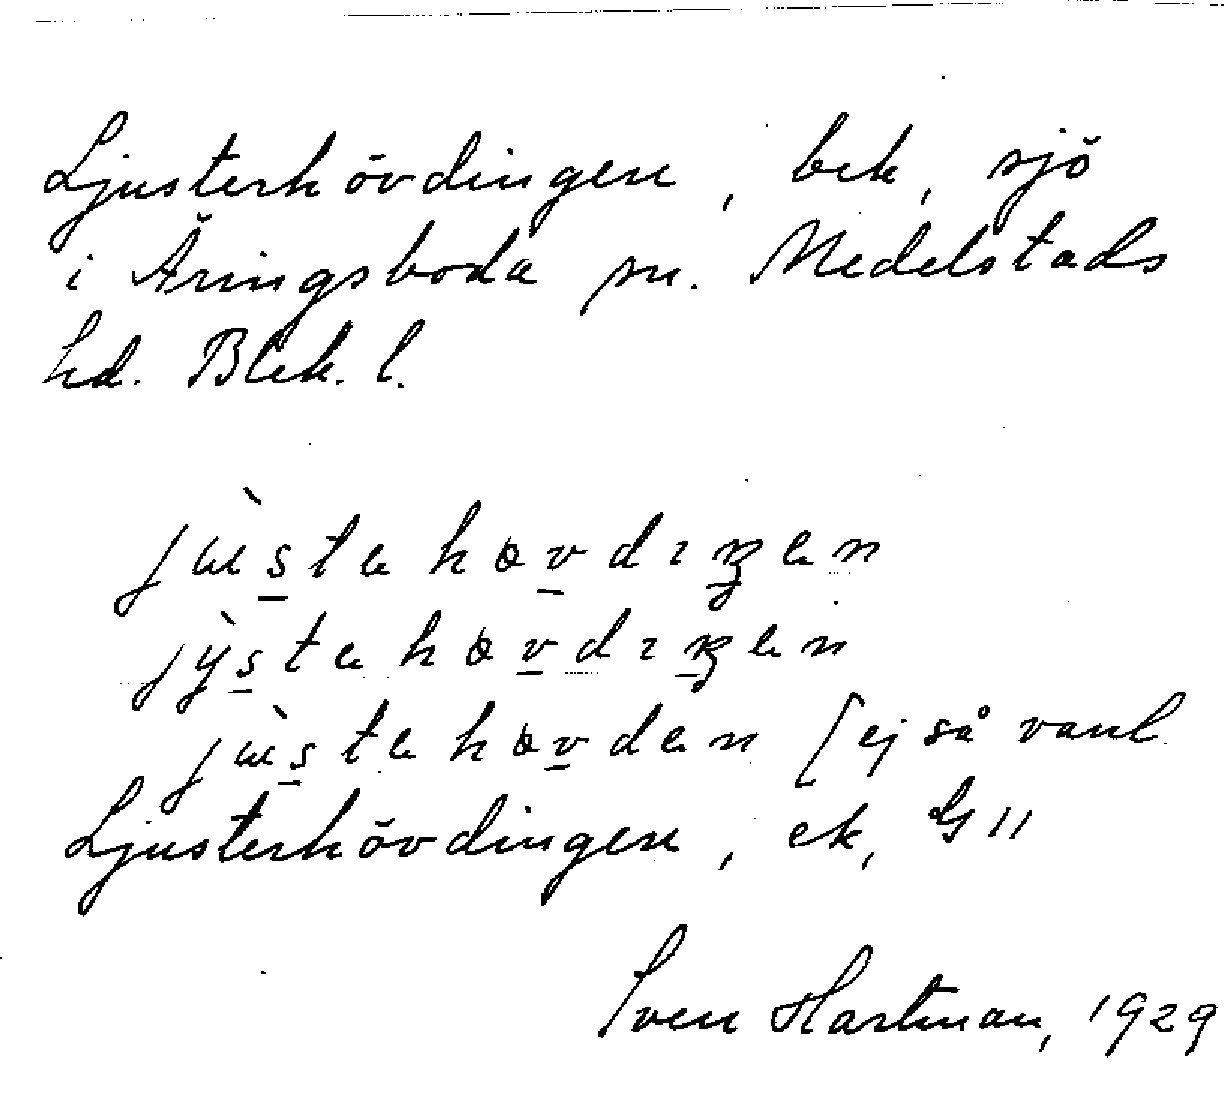 Ljusterhövdingen, bek, sjö
i Åringsboda sn. Medelstads
hd. Blek. l.
jùstahøvdıŋan
jỳstahøvdıŋan
jùstahøvdan [ej så vanl
Ljusterhövdingen, ek, G 11
Sven Hartman, 1929